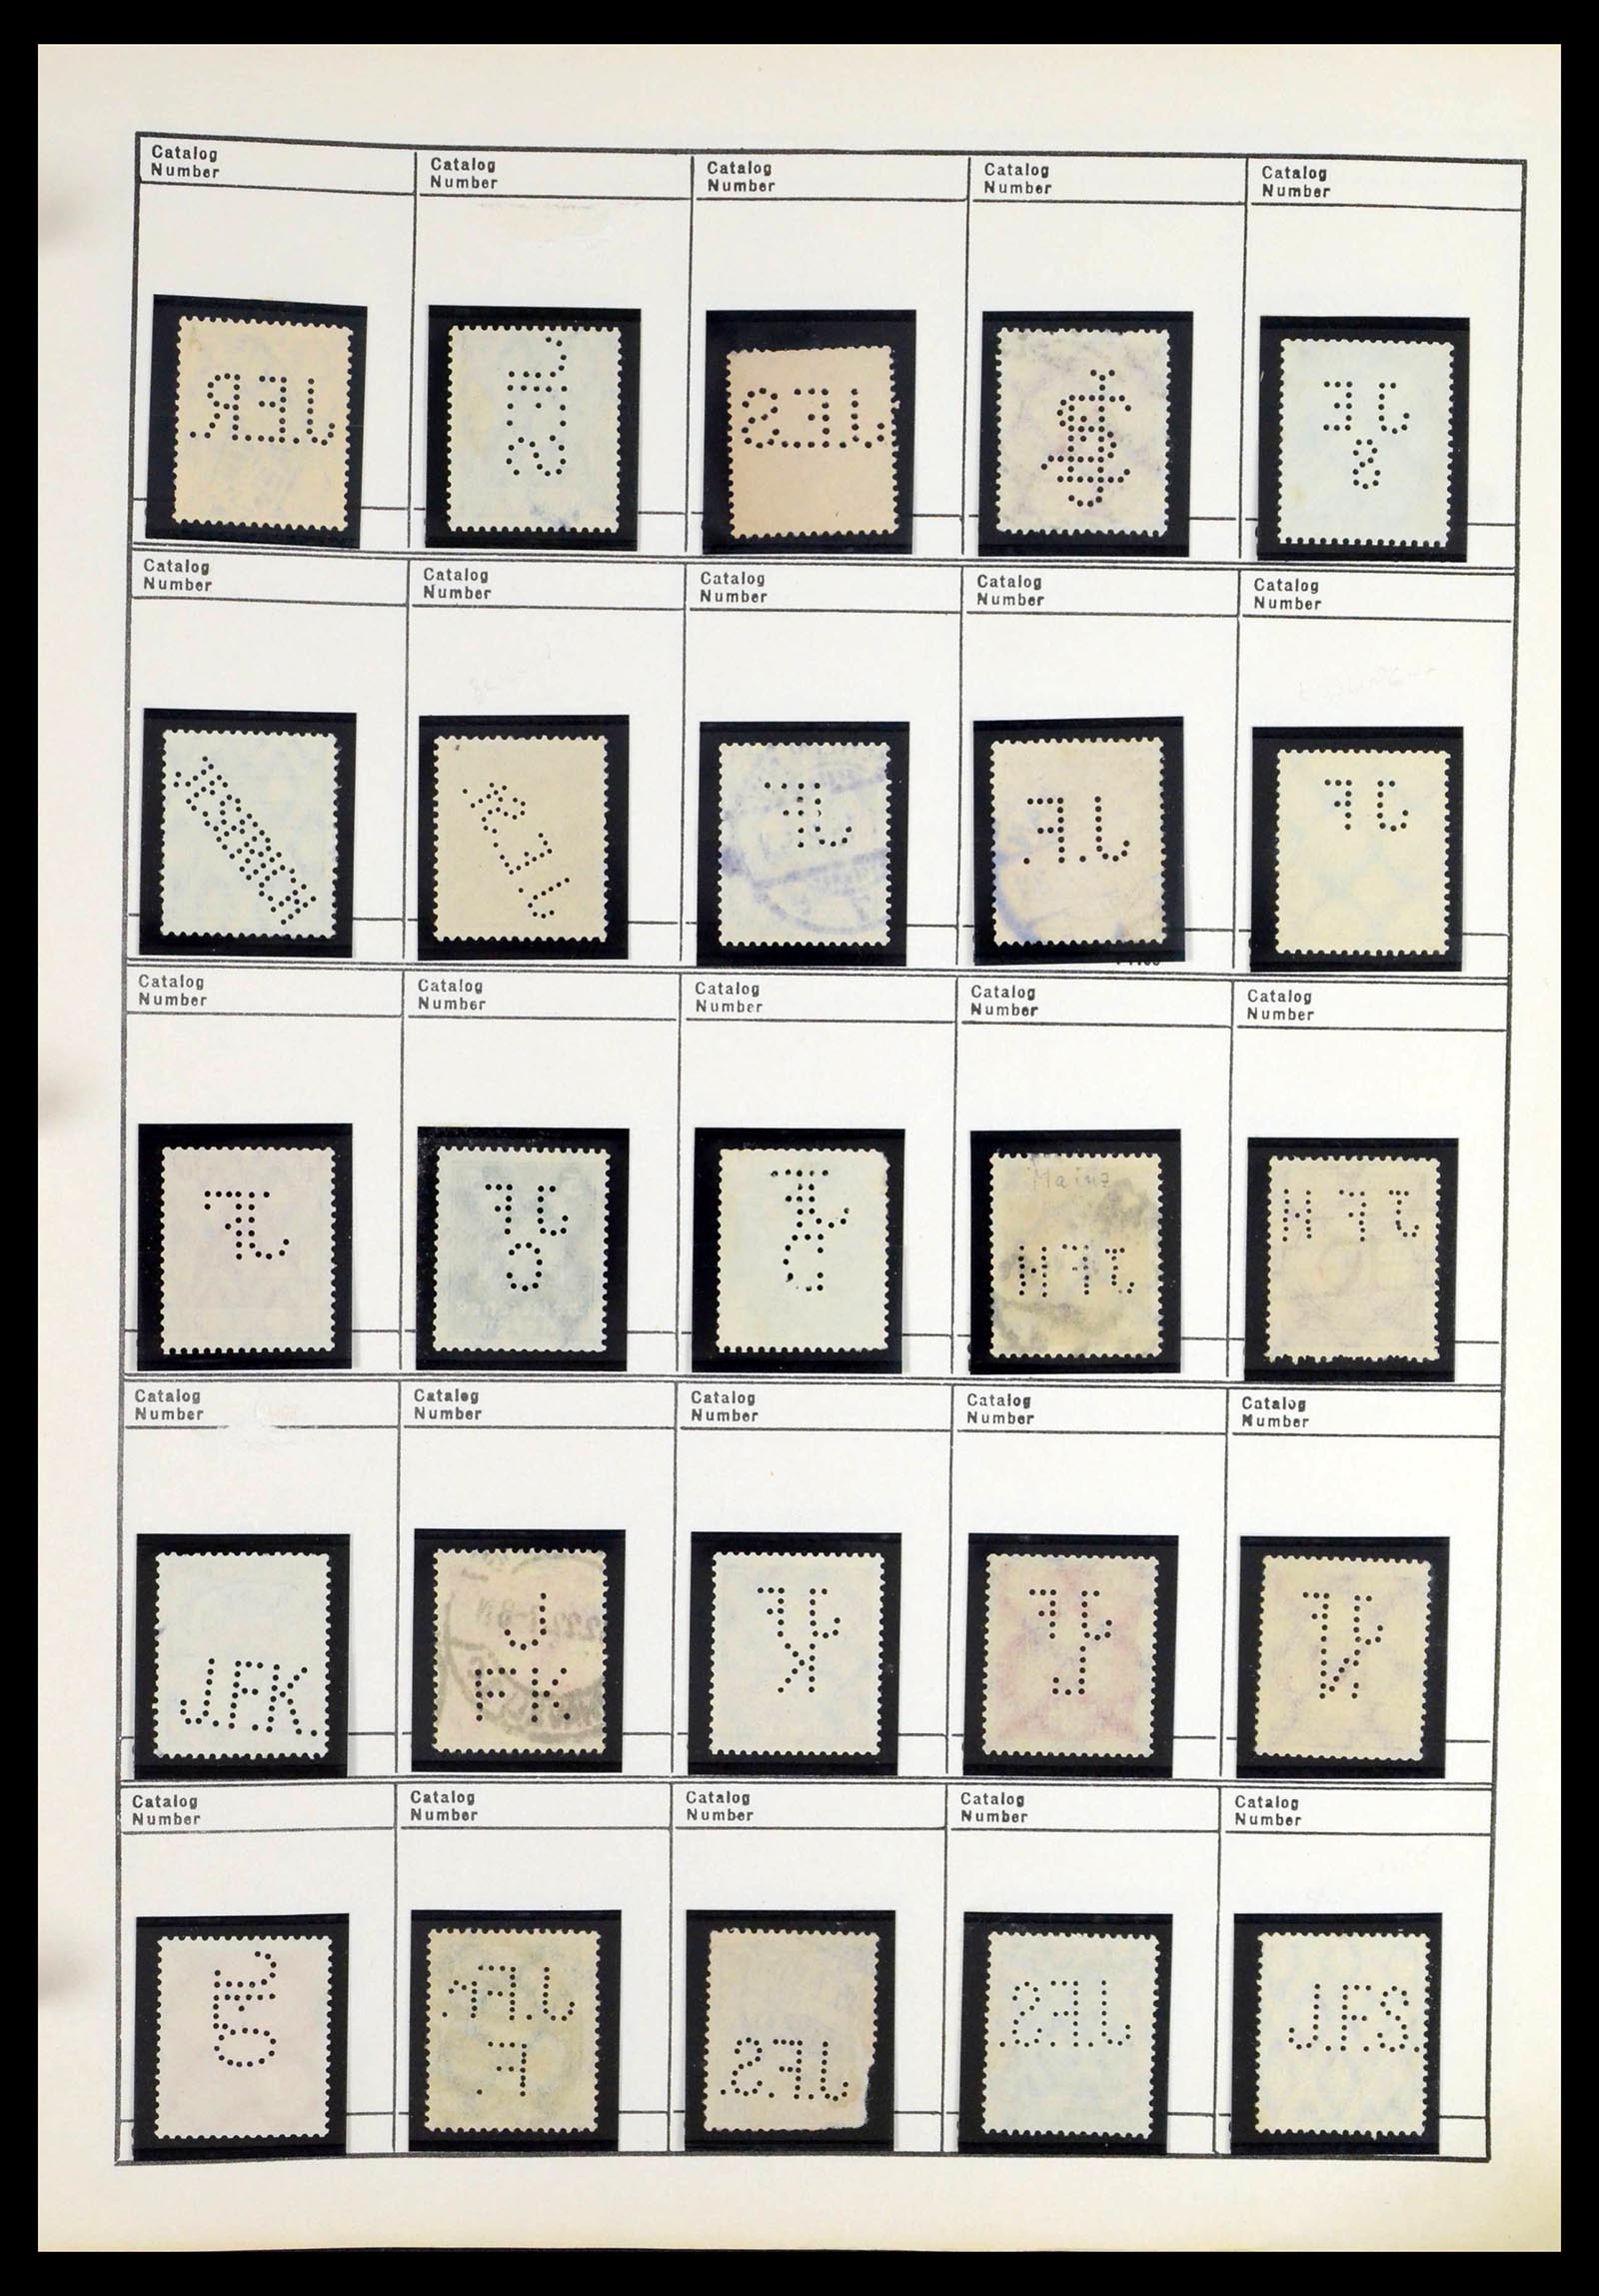 Catalog Number
Catalog Number
Catalog Number
Catalog Number
Catalog Number
J.E.R.
JES
J.E.S.
JE
S
Catalog Number
Catalog Number
Catalog Number
Catalog Number
Catalog Number
JF
J.F.
JF
Catalog Number
Catalog Number
Catalog Number
Catalog Number
Catalog Number
Mainz
JF
JF
O
JF
G
JFH
JFH
Catalog Number
Catalog Number
Catalog Number
Catalog Number
Catalog Number
J.F.K.
J
FK
JF
K
JF
L
JF
N
Catalog Number
Catalog Number
Catalog Number
Catalog Number
Catalog Number
J.F.r.
F.
J.F.S.
J.F.S.
J.F.S.